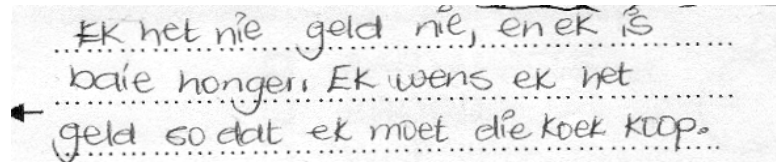 Ek het nie geld nie, en ek is
baie honger. Ek wens ek het
geld so dat ek moet die koek koop.